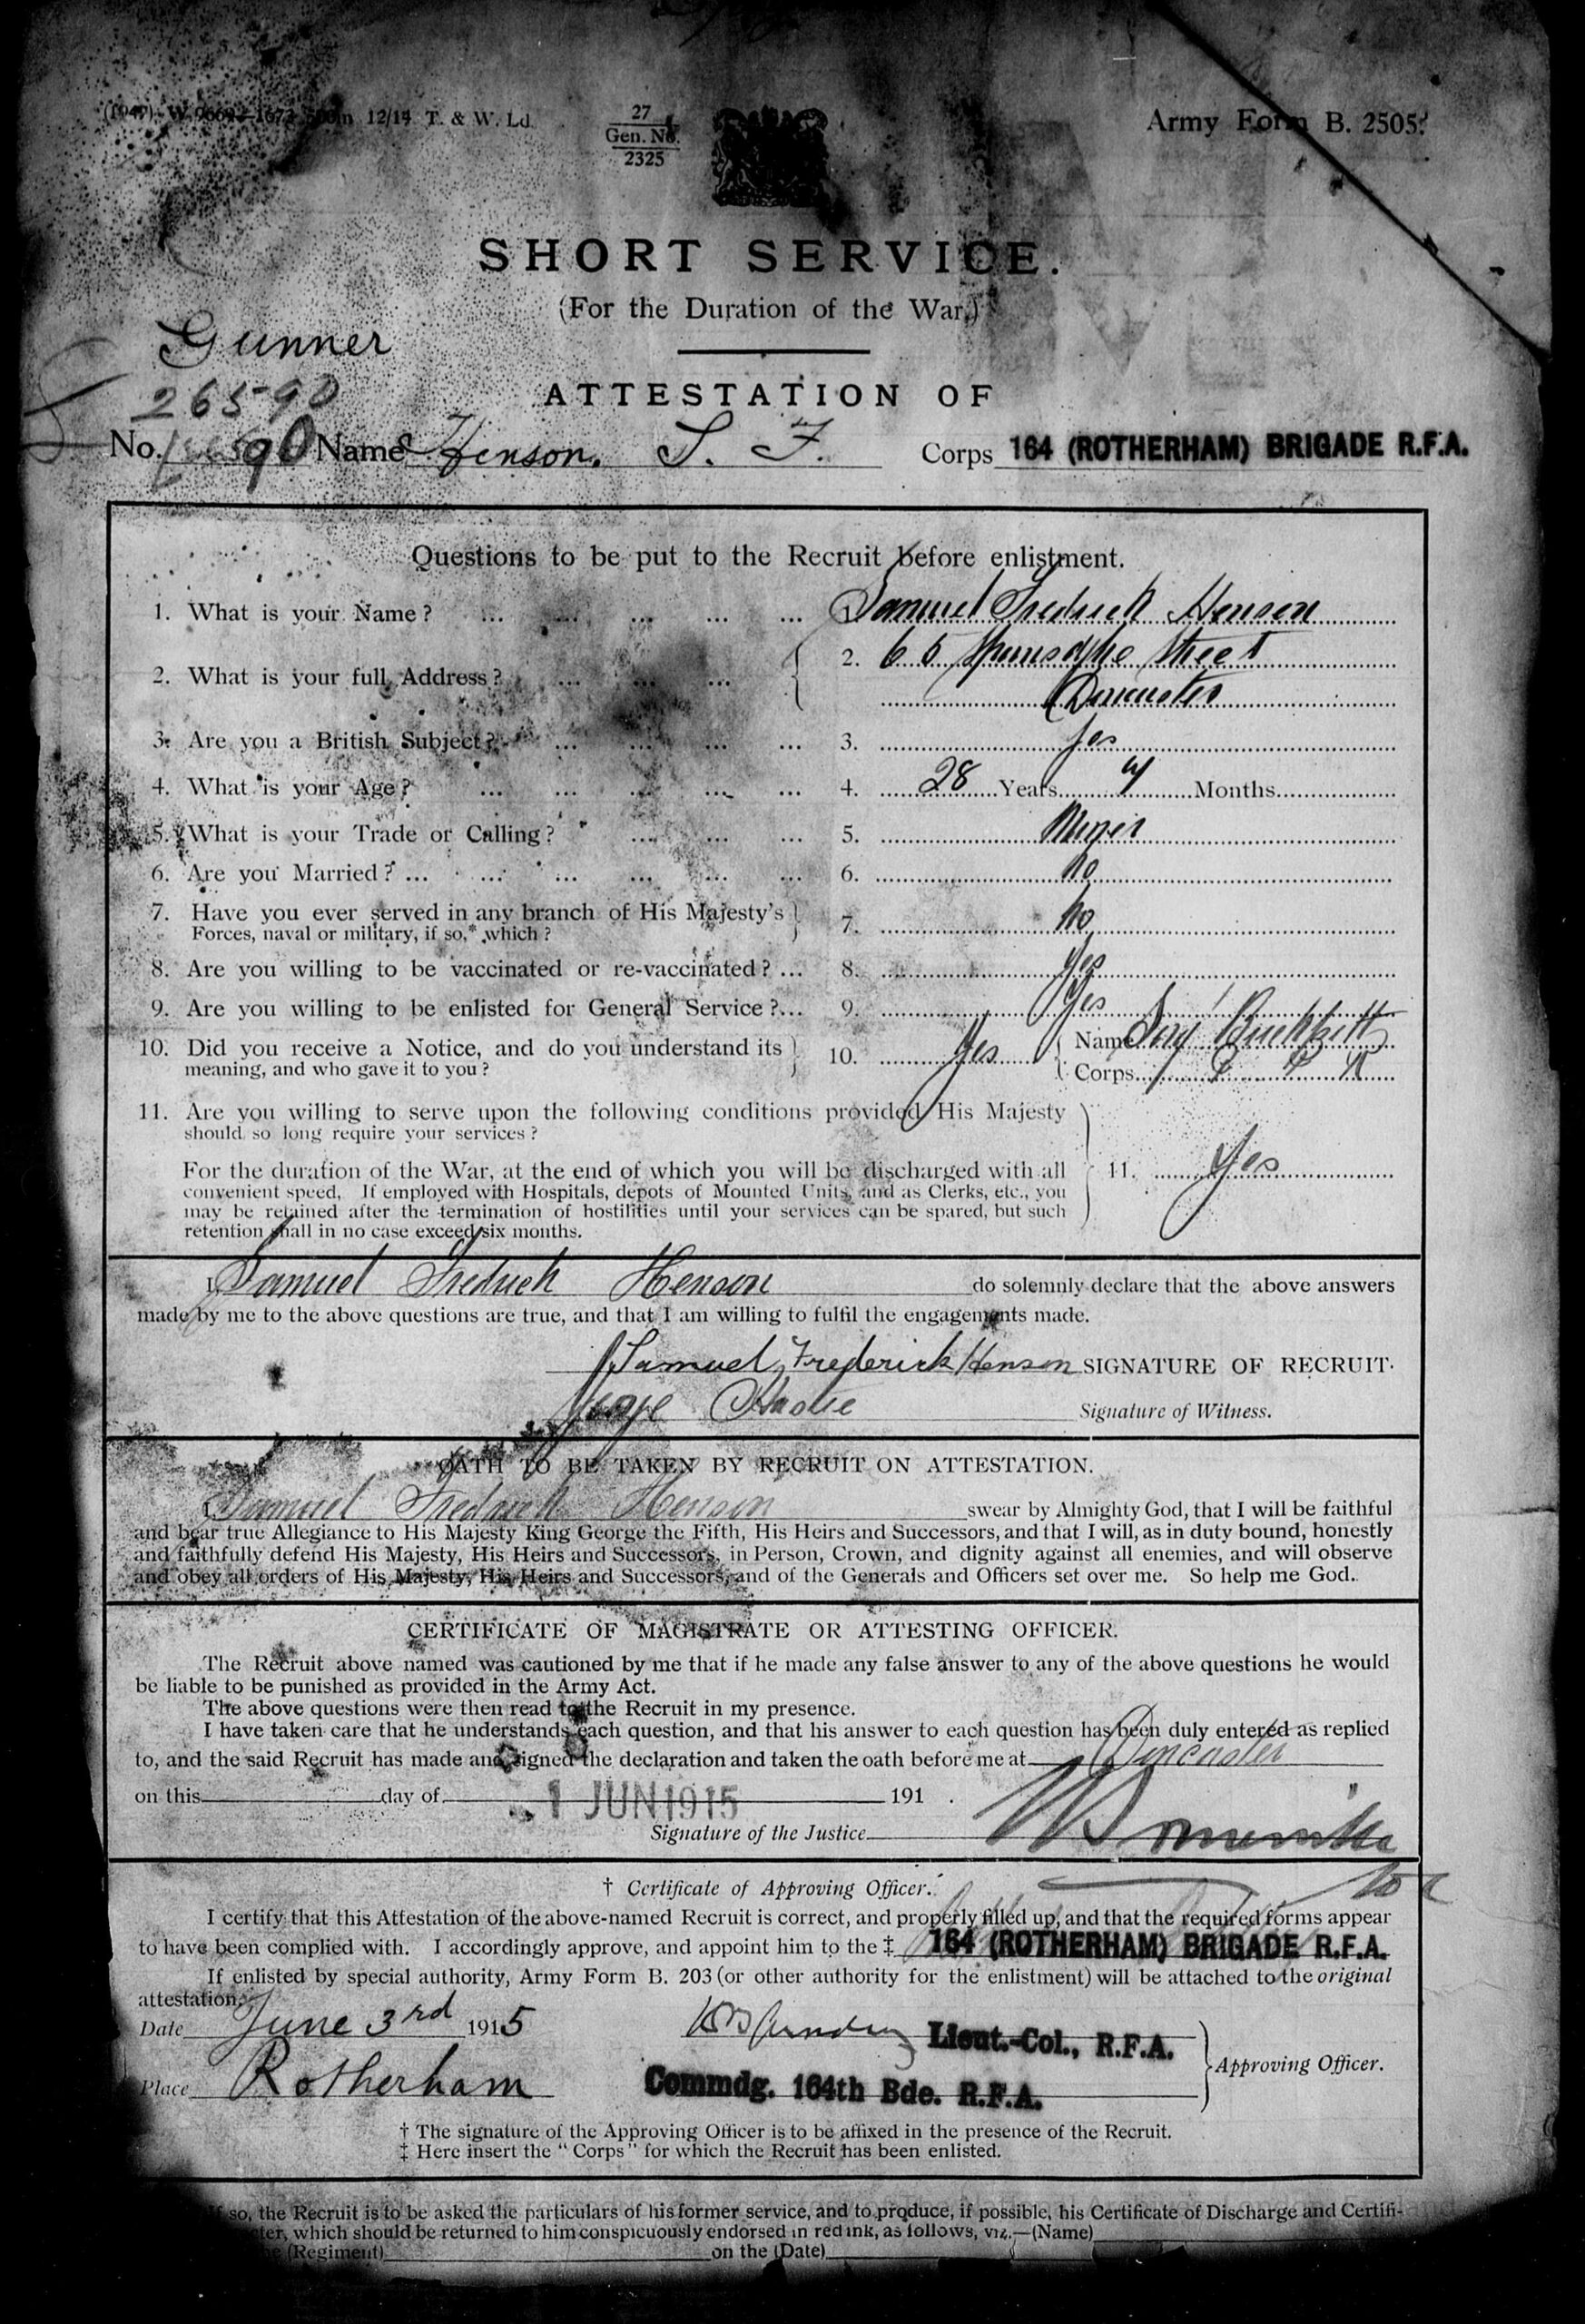 12/14 T. & W. Ld
27
Gen. No.
2325
Army Form B. 2505.
SHORT SERVICE.
(For the Duration of the War.)
Gunner
26590
ATTESTATION OF
No. 90 Name Henson. S. F. Corps 164 (ROTHERHAM) BRIGADE R.F.A.
Questions to be put to the Recruit before enlistment.
1. What is your Name? ... ... ... ... ... 1. Samuel Fredrick Henson
2. What is your full Address? ... ... ... 2. 65 Street
Doncaster
3. Are you a British Subject? ... ... ... ... 3. Yes
4. What is your Age? ... ... ... ... ... 4. 28 Years Months
5. What is your Trade or Calling? ... ... ... 5. Miner
6. Are you Married? ... ... ... ... ... ... 6. No
7. Have you ever served in any branch of His Majesty's 7. No
Forces, naval or military, if so,* which?
8. Are you willing to be vaccinated or re-vaccinated? ... 8. Yes
9. Are you willing to be enlisted for General Service? ... 9. Yes
10. Did you receive a Notice, and do you understand its 10. Yes Name
meaning, and who gave it to you? Corps
11. Are you willing to serve upon the following conditions provided His Majesty
should so long require your services?
For the duration of the War, at the end of which you will be discharged with all 11. Yes
convenient speed. If employed with Hospitals, depots of Mounted Units, and as Clerks, etc., you
may be retained after the termination of hostilities until your services can be spared, but such
retention shall in no case exceed six months.
I Samuel Fredrick Henson do solemnly declare that the above answers
made by me to the above questions are true, and that I am willing to fulfil the engagements made.
Samuel Frederick Henson SIGNATURE OF RECRUIT.
George Signature of Witness.
OATH TO BE TAKEN BY RECRUIT ON ATTESTATION.
I Samuel Fredrick Henson swear by Almighty God, that I will be faithful
and bear true Allegiance to His Majesty King George the Fifth, His Heirs and Successors, and that I will, as in duty bound, honestly
and faithfully defend His Majesty, His Heirs and Successors, in Person, Crown, and dignity against all enemies, and will observe
and obey all orders of His Majesty, His Heirs and Successors, and of the Generals and Officers set over me. So help me God.
CERTIFICATE OF MAGISTRATE OR ATTESTING OFFICER.
The Recruit above named was cautioned by me that if he made any false answer to any of the above questions he would
be liable to be punished as provided in the Army Act.
The above questions were then read to the Recruit in my presence.
I have taken care that he understands each question, and that his answer to each question has been duly entered as replied
to, and the said Recruit has made and signed the declaration and taken the oath before me at Doncaster
on this day of 1 JUN 1915 191 .
Signature of the Justice
† Certificate of Approving Officer.
I certify that this Attestation of the above-named Recruit is correct, and properly filled up, and that the required forms appear
to have been complied with. I accordingly approve, and appoint him to the ‡ 164 (ROTHERHAM) BRIGADE R.F.A.
If enlisted by special authority, Army Form B. 203 (or other authority for the enlistment) will be attached to the original
attestation.
Date June 3rd 1915 Lieut.-Col., R.F.A.
Approving Officer.
Place Rotherham Commdg. 164th Bde. R.F.A.
† The signature of the Approving Officer is to be affixed in the presence of the Recruit.
‡ Here insert the "Corps" for which the Recruit has been enlisted.
If so, the Recruit is to be asked the particulars of his former service, and to produce, if possible, his Certificate of Discharge and Certifi-
which should be returned to him conspicuously endorsed in red ink, as follows, viz.—(Name)
(Regiment) on the (Date)